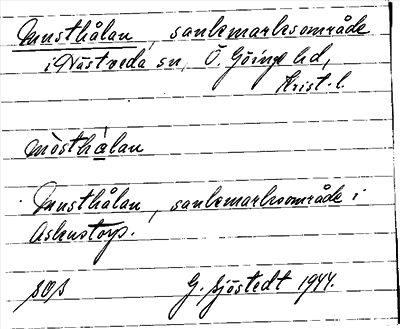 Munsthålan, sankmarksområde
i Nästveda sn, Ö. Göinge hd,
Krist. l.
mòsthá̱lan
Munsthålan, sankmarksområde i
Askustorp.
G. Sjöstedt 1944.